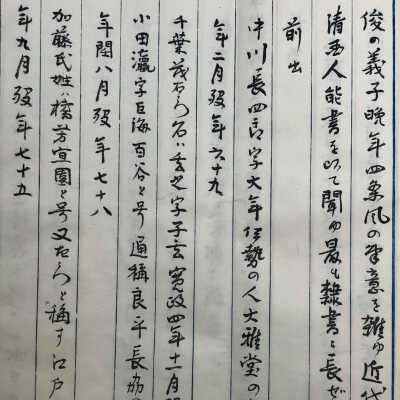 俊の義子晩年四条風の筆意を雑ゆ近代
清画人能書を以て聞ゆ最も隷書に長ず
前出
中川長四郎字大年伊勢の人大雅堂の
年二月歿年六十九
千葉茂右衛門名ハ玄之字子玄寛政四年十一月歿
小田瀛字巨海百谷と号通称良平長州の
年閏八月歿年七十八
加藤氏姓ハ橘芳宜園と号又右衛門と稱す江戸
年九月歿年七十五